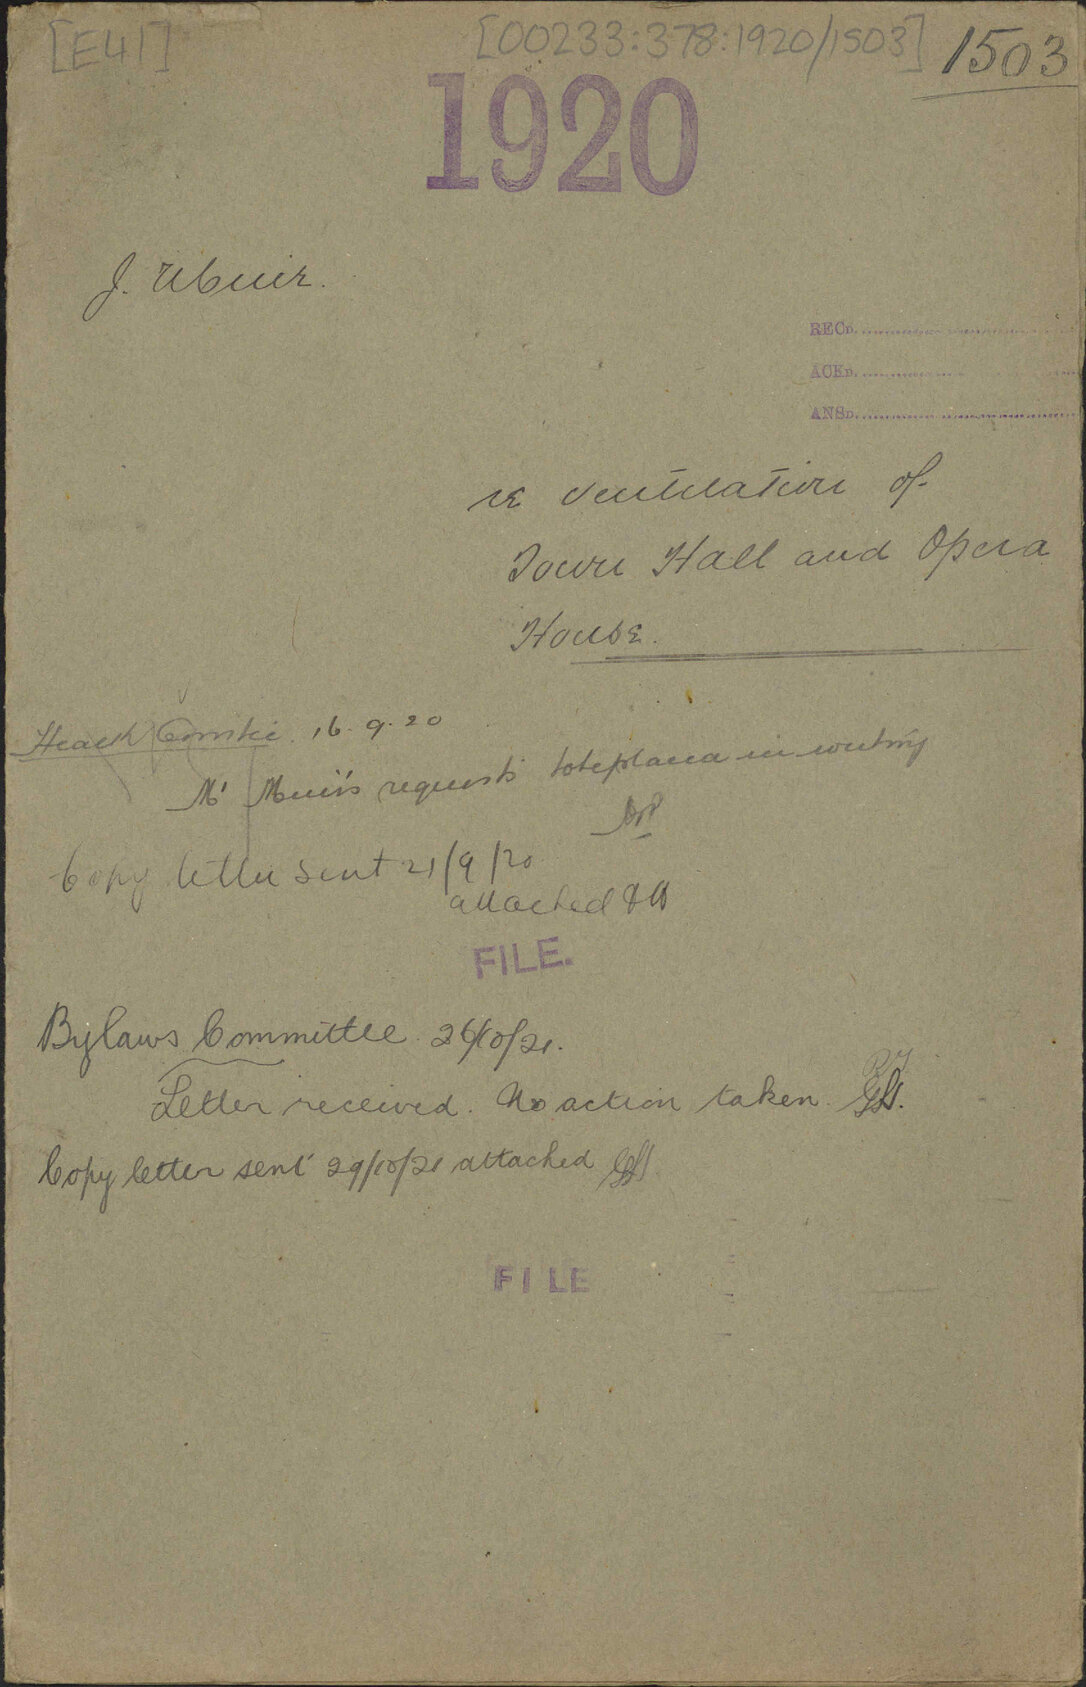 [E41]
[00233:378:1920/1503]
1503
1920
J. Muir.
RECD.
ACKD.
ANSD.
re ventilation of
Town Hall and Opera
House.
Health Comtee 16.9.20
Mr Muir's requests to be placed in writing
Copy letter sent 21/9/20
attached
FILE.
Bylaws Committee 26/10/21.
Letter received. No action taken.
Copy letter sent 29/10/21 attached
FILE